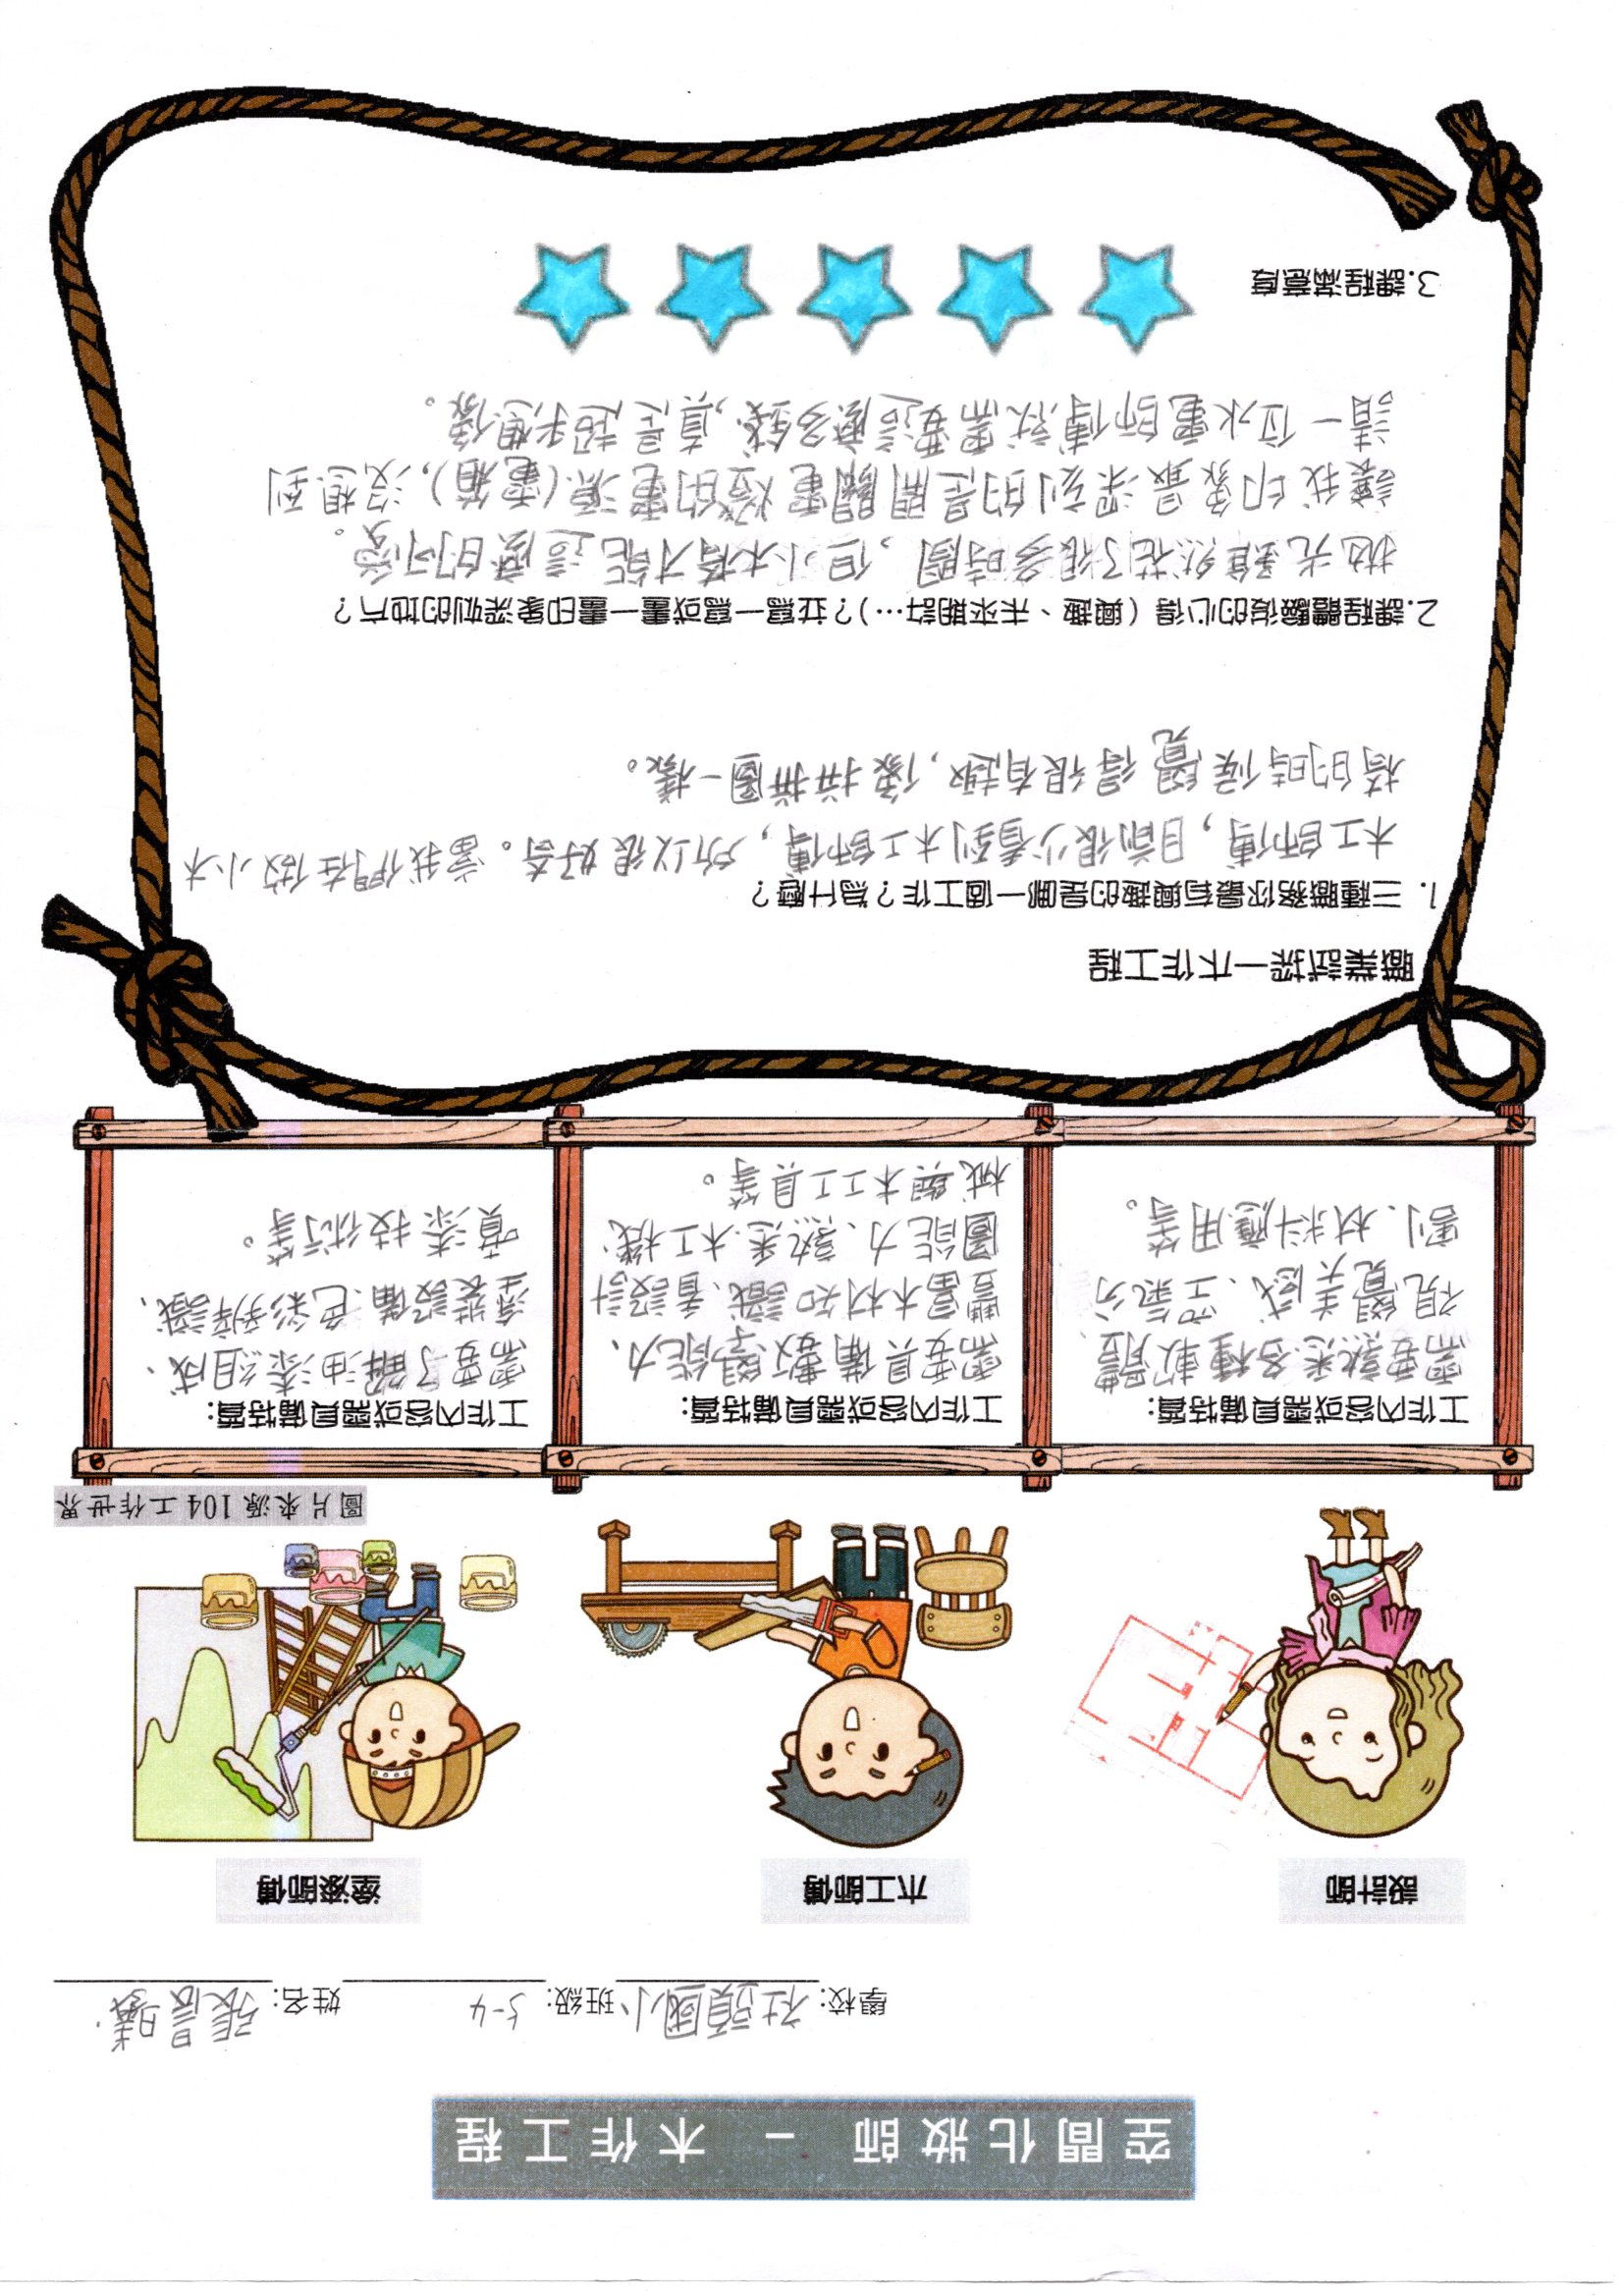 空間化妝師 - 木作工程
學校：社頭國小 班級：5-4 姓名：張宸
設計師
木工師傅
塗漆師傅
圖片來源 104 工作世界
工作內容或需具備特質：
需要熟悉各種軟體、
視覺美感、空氣分
割、材料應用等。
工作內容或需具備特質：
需要具備數學能力、
豐富木材知識、看設計
圖能力、熟悉木工機
械與木工工具等。
工作內容或需具備特質：
需要了解油漆組成、
塗裝設備、色彩辨識、
噴漆技術等。
職業試探—木作工程
1. 三種職務你最有興趣的是哪一個工作？為什麼？
木工師傅，目前很少看到木工師傅，所以很好奇。當我們在做小木
椅的時候覺得很有趣，像拼拼圖一樣。
2.課程體驗後的心得（興趣、未來期許…）？並寫一寫或畫一畫印象深刻的地方？
拋光雖然花了很多時間，但小木椅才能這麼的可愛。
讓我印象最深刻的是開關電燈的電源(電箱)，沒想到
請一位水電師傅就需要這麼多錢，真是超乎想像。
3.課程滿意度